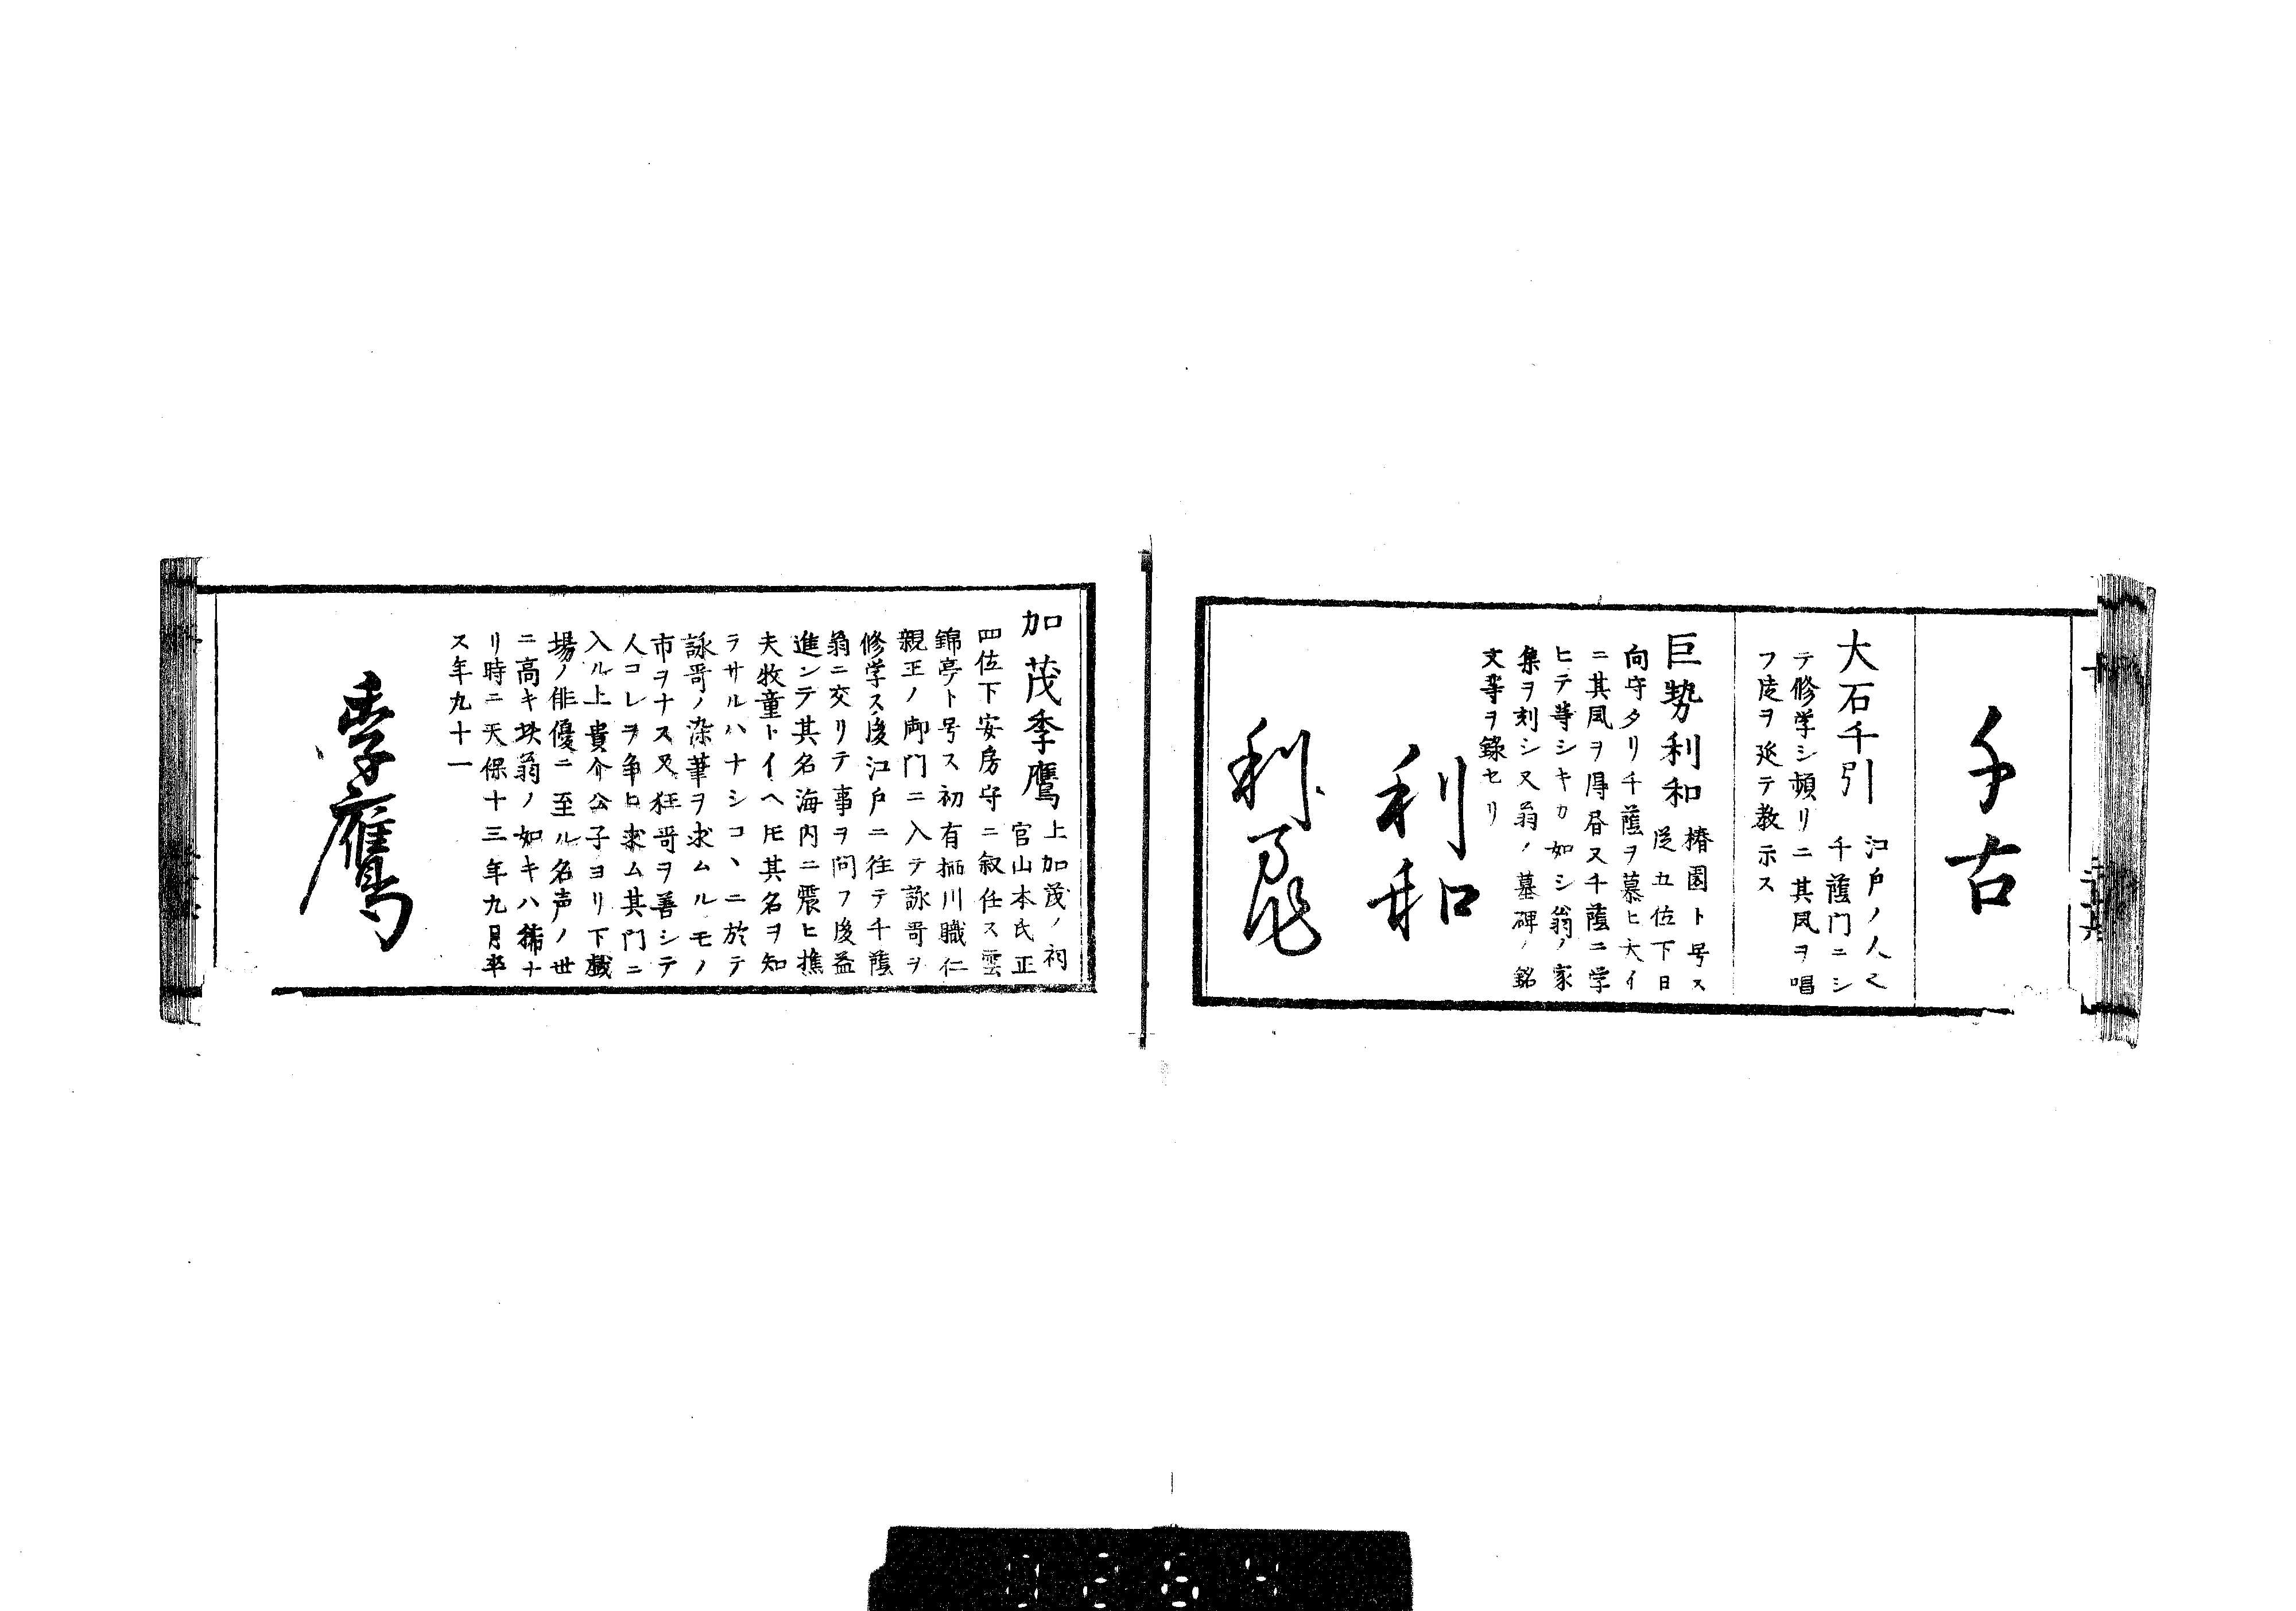 千古
大石千引 江戸ノ人也
千蔭門ニシ
テ修学シ頻リニ其風ヲ唱
フ徒ヲ延テ教示ス
巨勢利和 椿園ト号ス
従五位下日
向守タリ千蔭ヲ慕ヒ大イ
ニ其風ヲ得昼又千蔭ニ学
ヒテ等シキカ如シ翁ノ家
集ヲ刻シ又翁ノ墓碑ノ銘
文等ヲ録セリ
利和
利
加茂季鷹 上加茂ノ祠
官山本氏正
四位下安房守ニ叙任ス雲
錦亭ト号ス初有栖川職仁
親王ノ御門ニ入テ詠哥ヲ
修学ス後江戸ニ往テ千蔭
翁ニ交リテ事ヲ問フ後益
進ンテ其名海内ニ震ヒ樵
夫牧童トイヘ𪜈其名ヲ知
ラサルハナシコヽニ於テ
詠哥ノ染筆ヲ求ムルモノ
市ヲナス又狂哥ヲ善シテ
人コレヲ争ヒ求ム其門ニ
入ル上貴介公子ヨリ下戯
場ノ俳優ニ至ル名声ノ世
ニ高キ此翁ノ如キハ稀ナ
リ時ニ天保十三年九月卒
ス年九十一
季鷹